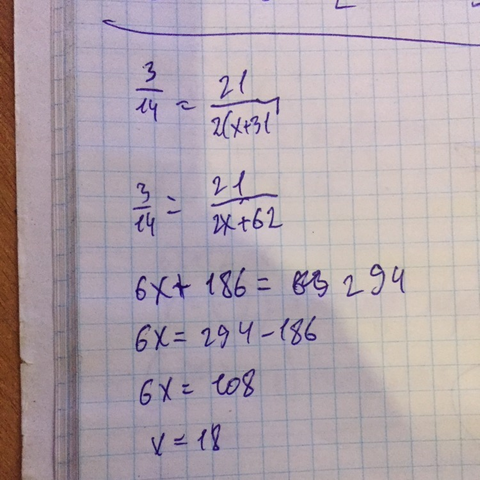 3/14 = 21/2(x+31
3/14 = 21/2x+62
6x+186= 294
6x=294-186
6x=108
x=18